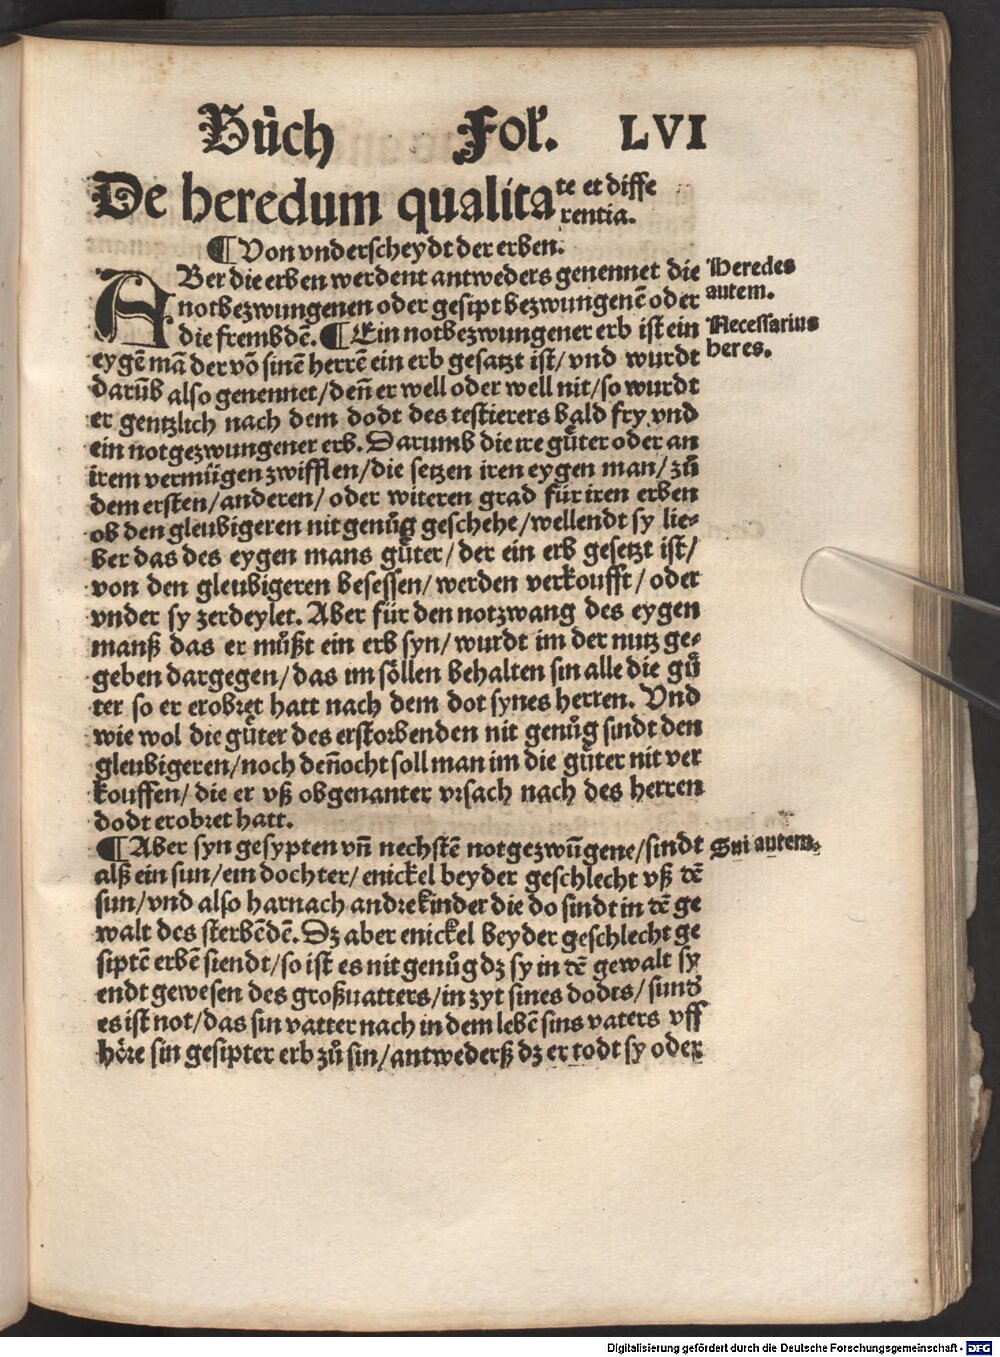 Bůch Fol'. LVI
De heredum qualitate et differentia.
¶ Von vnderscheydt der erben.
ABer die erben werdent antweders genennet die
Heredes autem.
notbezwungenen oder gesipt bezwungenē oder
die frembdē. ¶ Ein notbezwungener erb ist ein
Necessarius heres.
eygē mā der vō sinē herrē ein erb gesatzt ist/ vnd wurdt
darūb also genennet/ deñ er well oder well nit/ so wurdt
er gentzlich nach dem dodt des testierers bald fry vnd
ein notgezwungener erb. Darumb die ire gůter oder an
irem vermügen zwifflen/ die setzen iren eygen man/ zů
dem ersten/ anderen/ oder witeren grad für iren erben
ob den gleubigeren nit genůg geschehe/ wellendt sy lie-
ber das des eygen mans gůter/ der ein erb gesetzt ist/
von den gleubigeren besessen/ werden verkoufft/ oder
vnder sy zerdeylet. Aber für den notzwang des eygen
manß das er můßt ein erb syn/ wurdt im der nutz ge-
geben dargegen/ das im söllen behalten sin alle die gů
ter so er erobret hatt nach dem dot synes herren. Vnd
wie wol die gůter des erstorbenden nit genůg sindt den
gleubigeren/ noch deñocht soll man im die gůter nit ver
kouffen/ die er vß obgenanter vrsach nach des herren
dodt erobret hatt.
¶ Aber syn gesypten vñ nechstē notgezwūgene/ sindt
Sui autem.
alß ein sun/ ein dochter/ enickel beyder geschlecht vß dē
sun/ vnd also harnach andre kinder die do sindt in dē ge
walt des sterbēdē. Dz aber enickel beyder geschlecht ge
siptē erbē siendt/ so ist es nit genůg dz sy in dē gewalt sy
endt gewesen des großuatters/ in zyt sines dodts/ sund
es ist not/ das sin vatter nach in dem lebē sins vaters vff
höre sin gesipter erb zů sin/ antwederß dz er todt sy oder
Digitalisierung gefördert durch die Deutsche Forschungsgemeinschaft - DFG